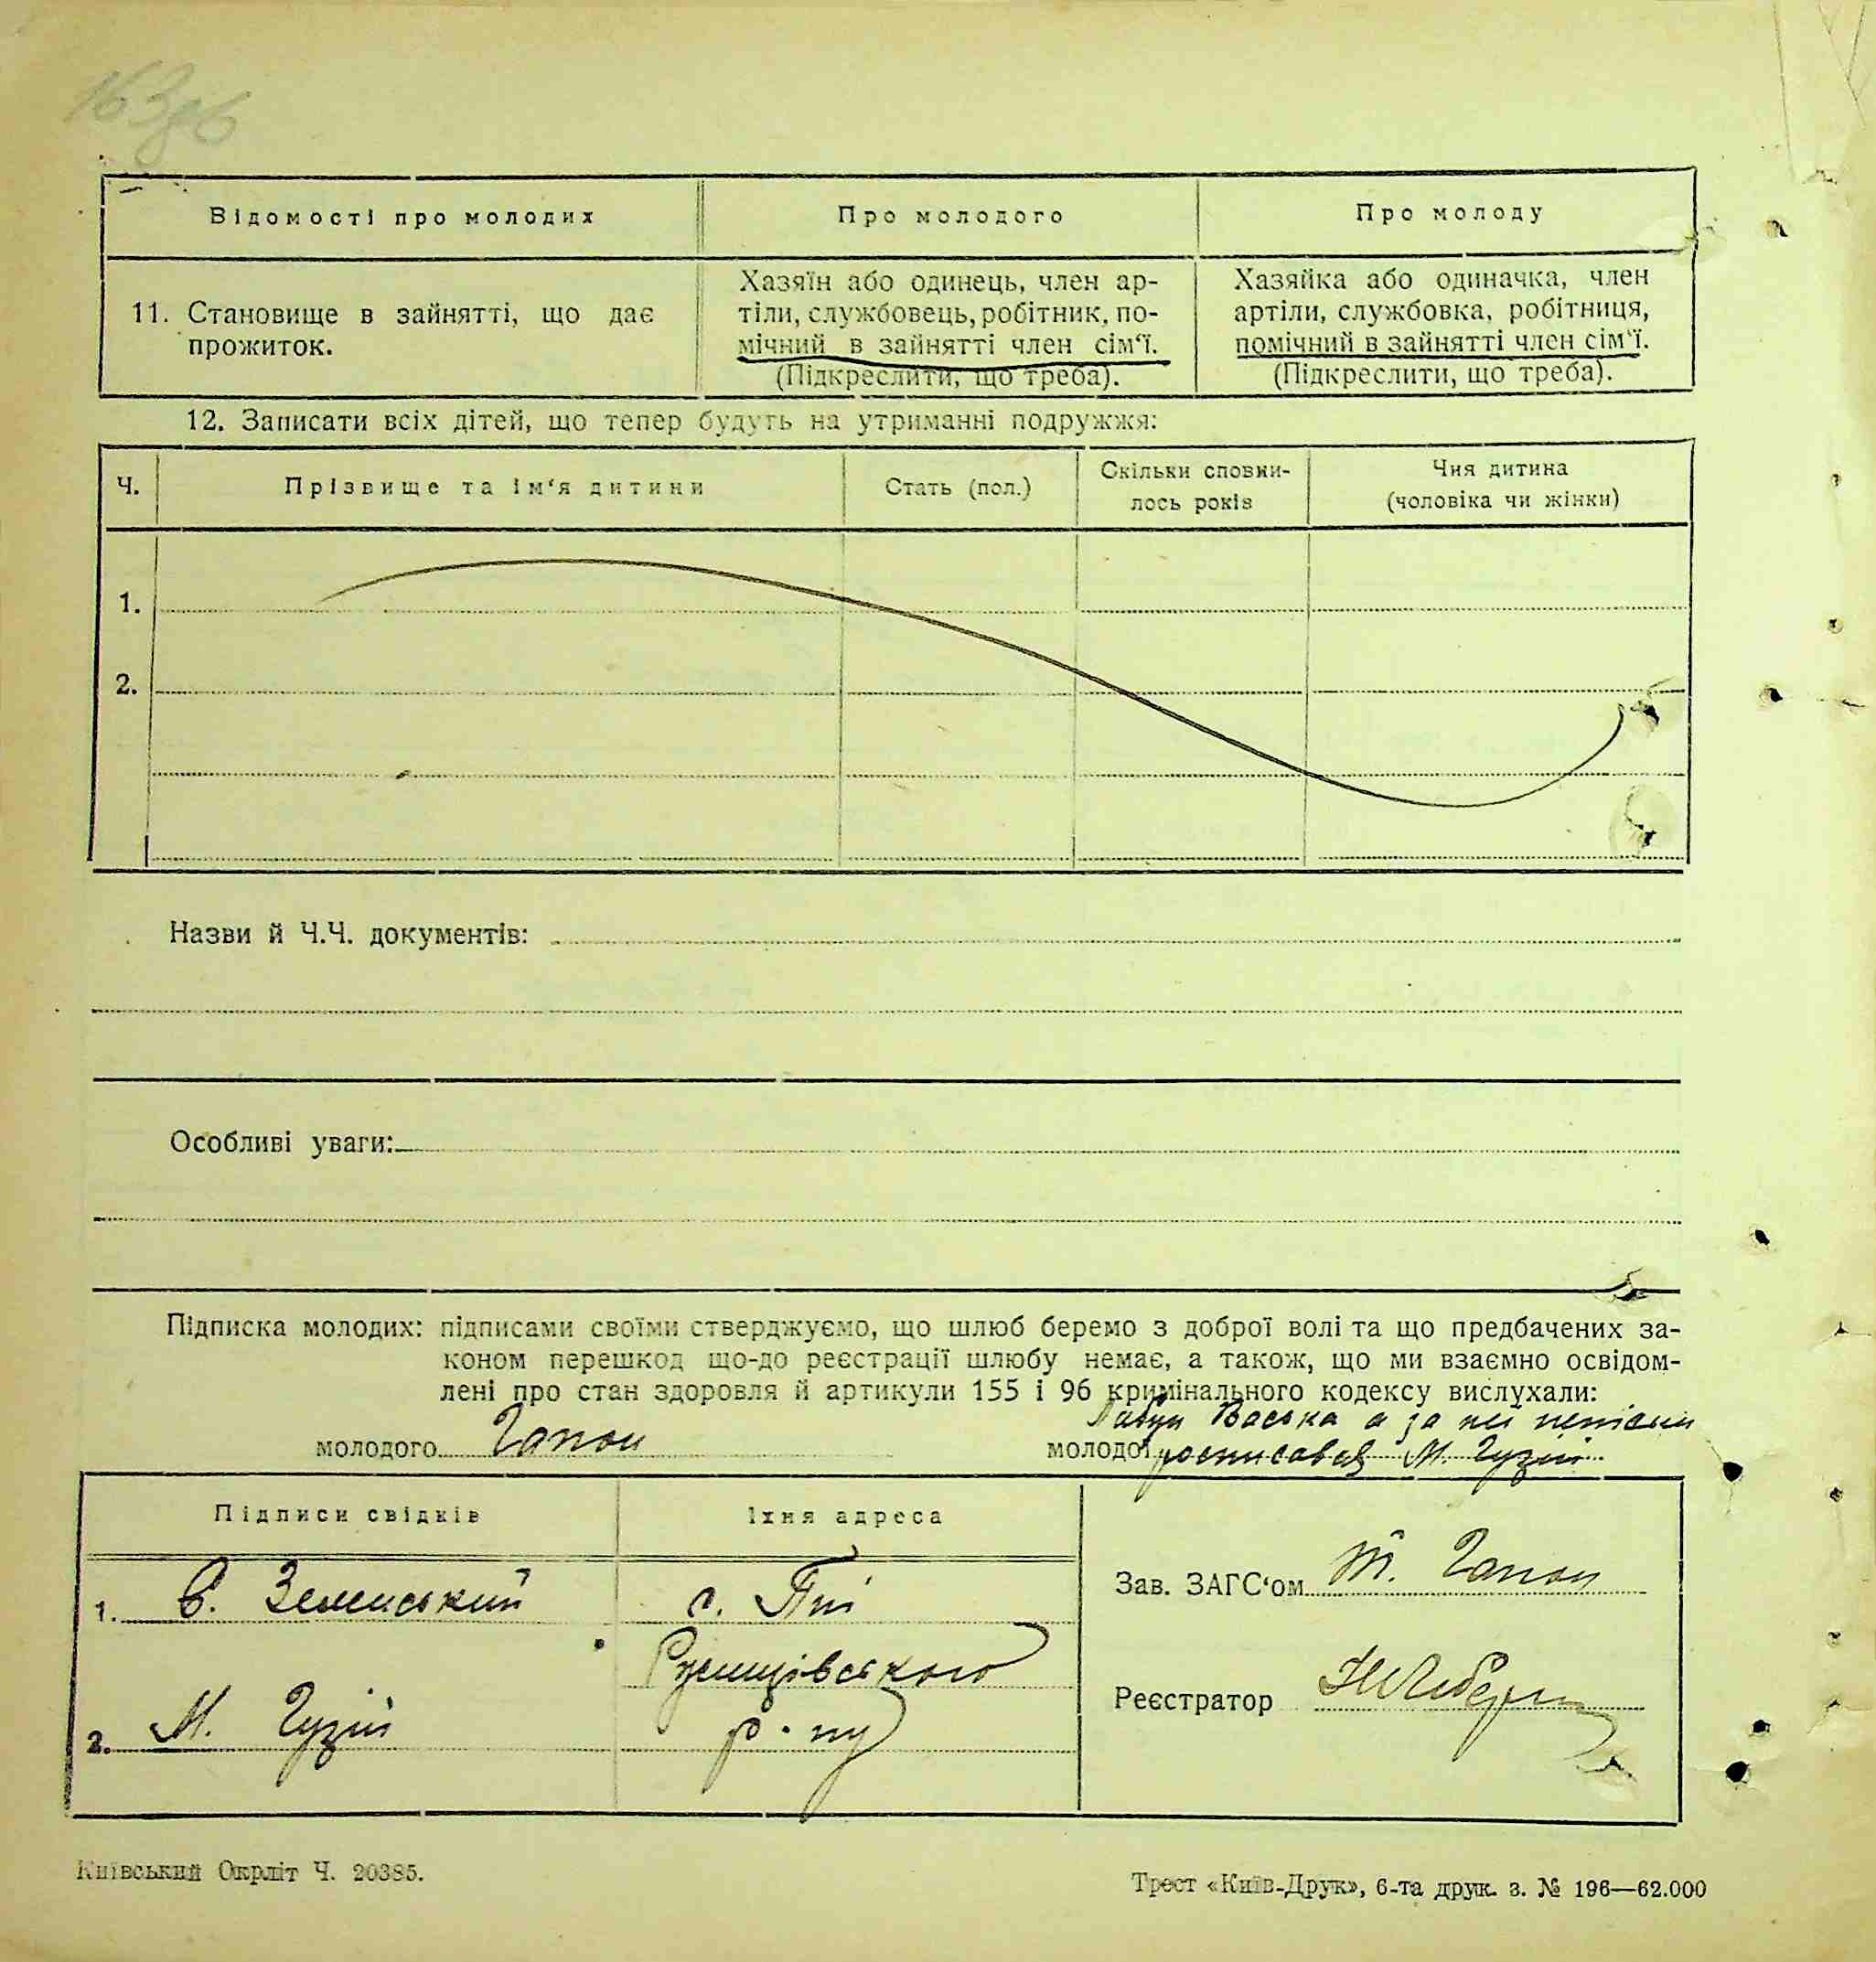 163зв
Відомості про молодих
Про молодого
Про молоду
11. Становище в зайнятті, що дає
прожиток.
Хазяїн або одинець, член ар-
тіли, службовець, робітник, по-
мічний в зайнятті член сім‘ї.
(Підкреслити, що треба).
Хазяйка або одиначка, член
артіли, службовка, робітниця,
помічний в зайнятті член сім‘ї.
(Підкреслити, що треба).
12. Записати всіх дітей, що тепер будуть на утриманні подружжя:
Ч.
Прізвище та ім‘я дитини
Стать (пол.)
Скільки сповни-
лось років
Чия дитина
(чоловіка чи жінки)
1.
2.
Назви й Ч.Ч. документів:
Особливі уваги:
Підписка молодих: підписами своїми стверджуємо, що шлюб беремо з доброї волі та що предбачених за-
коном перешкод що-до реєстрації шлюбу немає, а також, що ми взаємно освідом-
лені про стан здоровля й артикули 155 і 96 кримінального кодексу вислухали:
Васька а за неї
молодого Гапон
молодої росписався М. Гузій
Підписи свідків
Їхня адреса
1. Є. Зеленський
с. Пії
Ржищівського
2. М. Гузій
р-ну
Зав. ЗАГС‘ом Т. Гапон
Реєстратор
Київський Окрліт Ч. 20385.
Трест «Київ-Друк», 6-та друк. з. № 196—62.000